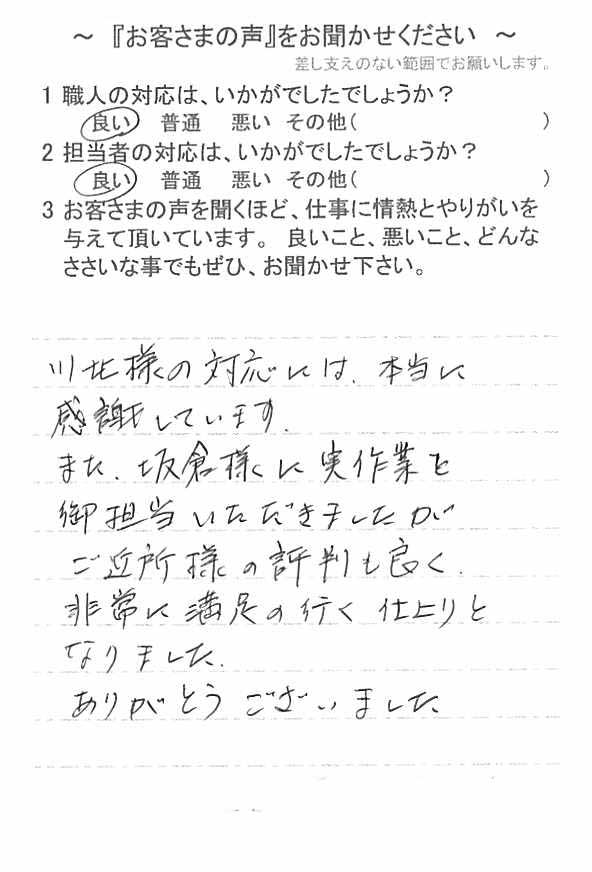 ～ 『お客さまの声』をお聞かせください ～
差し支えのない範囲でお願いします。
1 職人の対応は、いかがでしたでしょうか？
良い 普通 悪い その他( )
2 担当者の対応は、いかがでしたでしょうか？
良い 普通 悪い その他( )
3 お客さまの声を聞くほど、仕事に情熱とやりがいを
与えて頂いています。 良いこと、悪いこと、どんな
ささいな事でもぜひ、お聞かせ下さい。
川北様の対応には、本当に
感謝しています。
また、坂倉様に実作業を
御担当いただきましたが
ご近所様の評判も良く、
非常に満足の行く仕上りと
なりました。
ありがとうございました